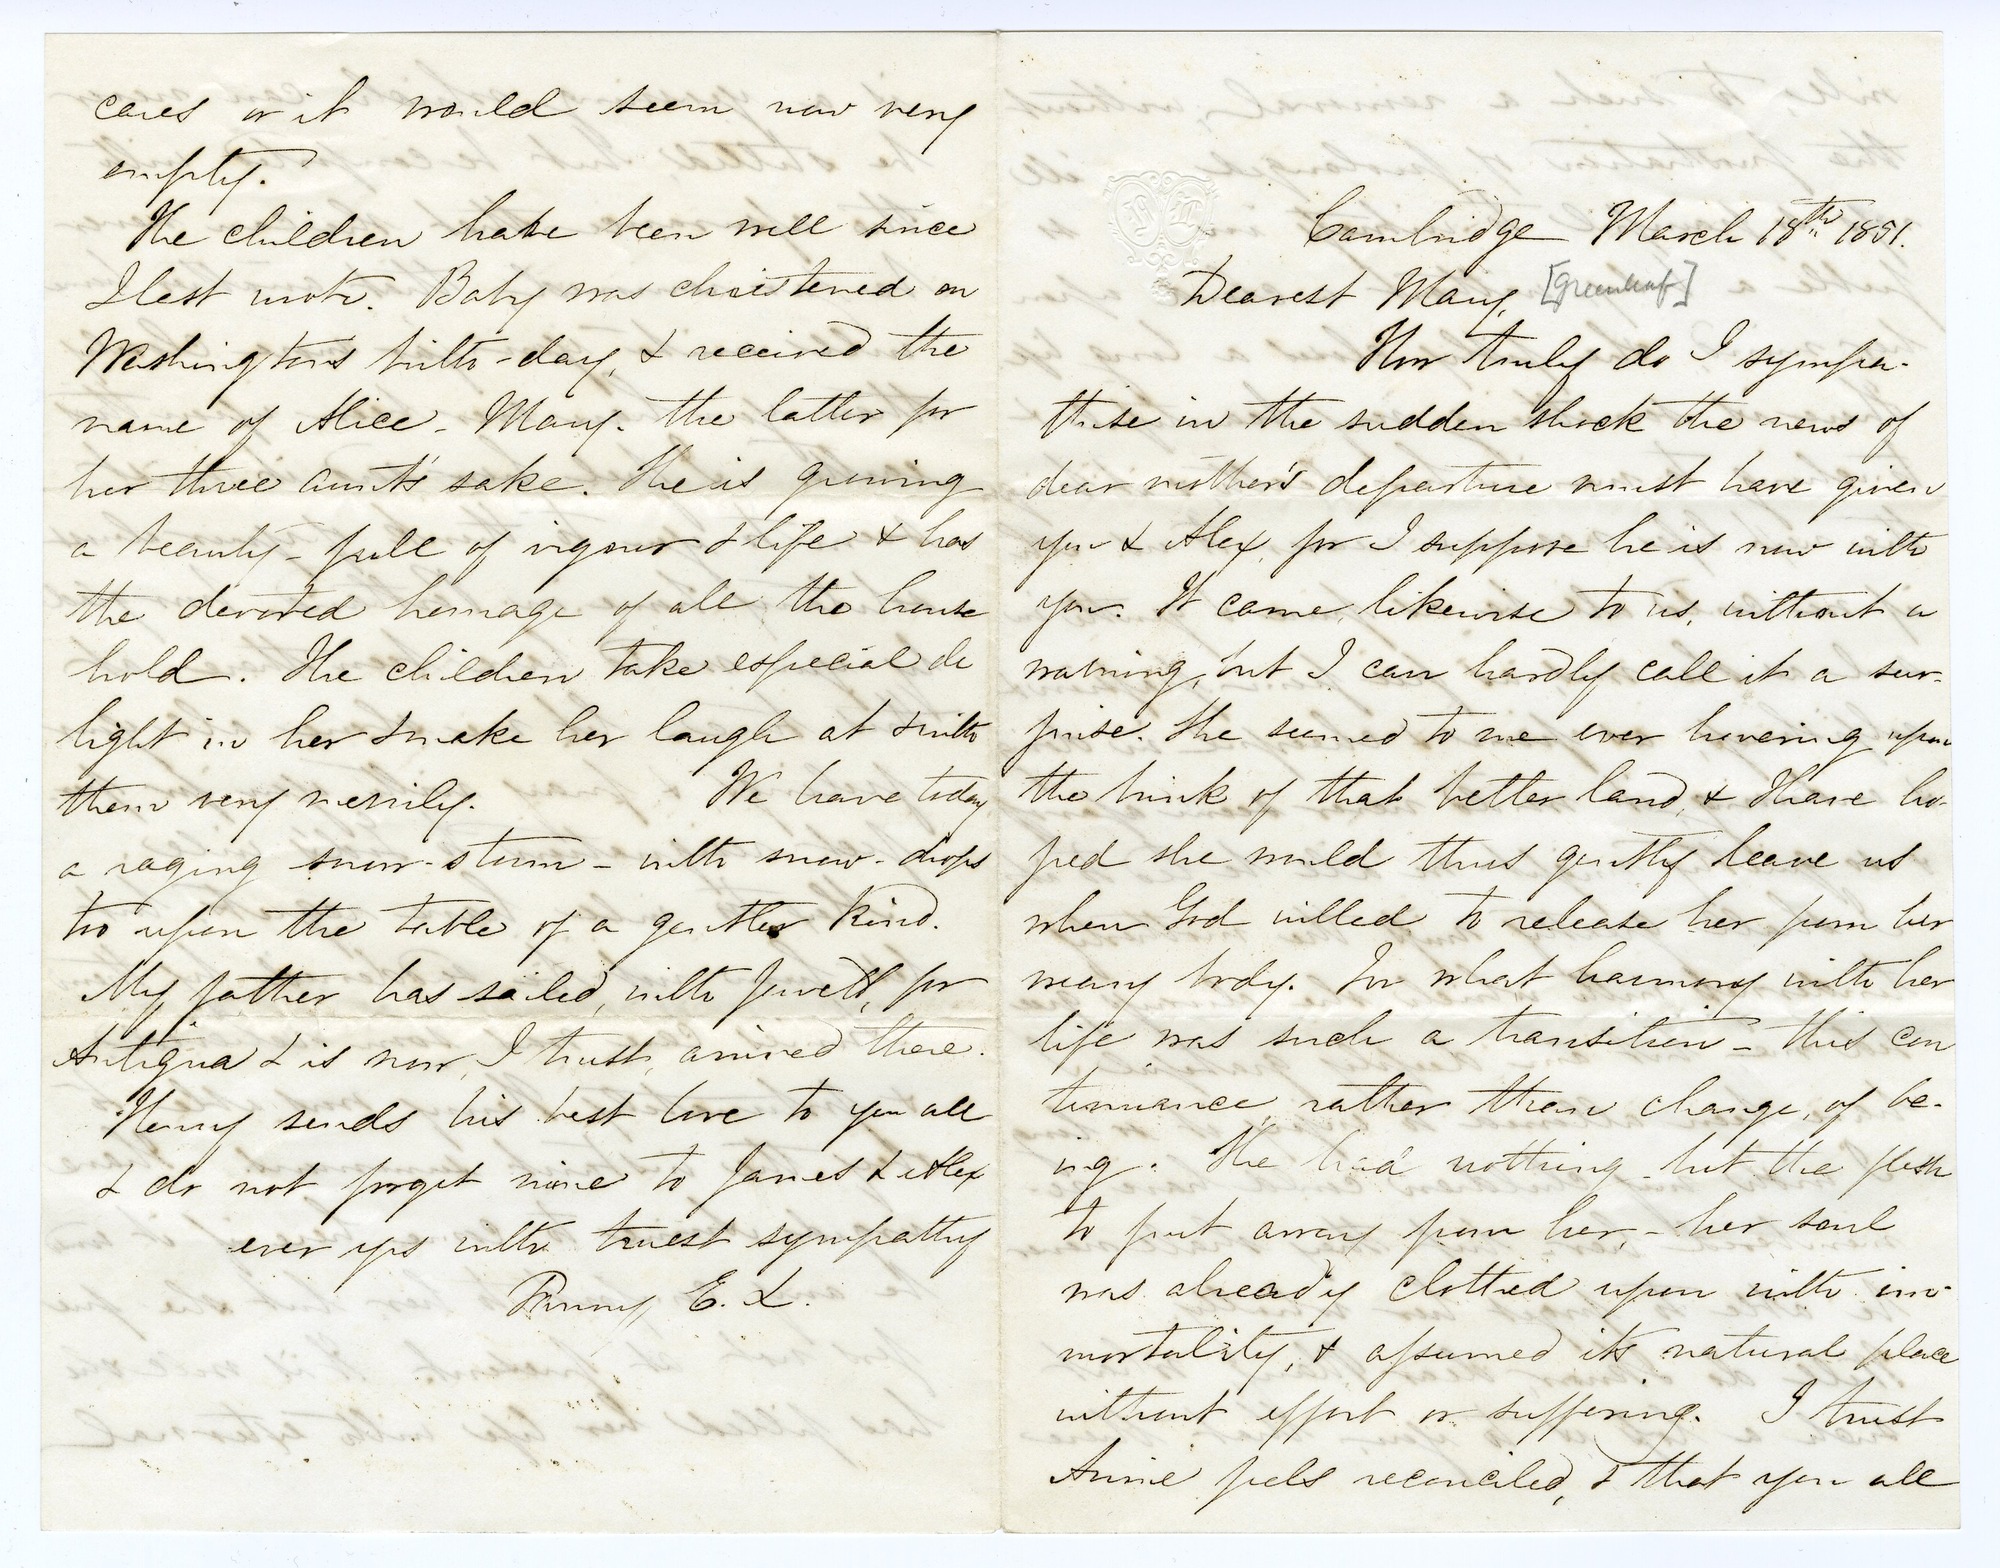 Cambridge March 18th 1851.
Dearest Mary, [Greenleaf]
How truly do I sympa-
thise in the sudden shock the news of
dear mother's departure must have given
you & Alex, for I suppose he is now with
you. It came, likewise to us, without a
warning, but I can hardly call it a sur-
prise. She seemed to me ever hovering upon
the brink of that better land, & I have ho-
ped she would thus gently leave us
when God willed to release her from her
weary body. In what harmony with her
life was such a transition – this con
tinuance, rather than change, of be-
ing. She had nothing but the flesh
to put away from her, – her soul
was already clothed upon with im-
mortality, & assumed its natural place
without effort or suffering. I trust
Annie feels reconciled, & that you all
cares or it would seem now very
empty.
The children have been well since
I last wrote. Baby was christened on
Washington's birth-day, & received the
name of Alice – Mary. the latter for
her three aunt's sake. She is growing
a beauty – full of vigour & life & has
the devoted homage of all the house
hold. The children take especial de
light in her & make her laugh at & with
them very merrily. We have today
a raging snow-storm – with snow-drops
too upon the table of a gentler kind.
My father has sailed, with Jewett, for
Antigua & is now, I trust, arrived there.
Henry sends his best love to you all
& do not forget mine to James & Alex
ever yrs with truest sympathy
Fanny E. L.